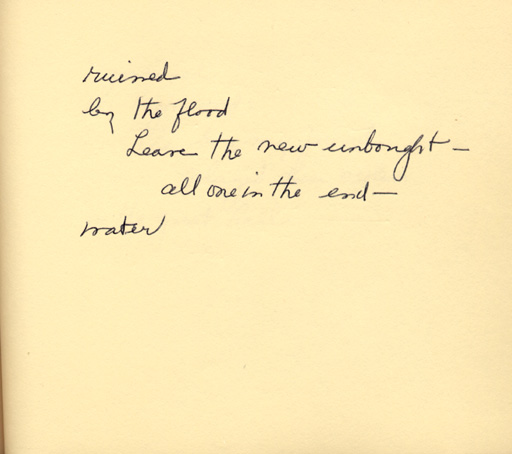 ruined
by the flood
Leave the new unbought —
all one in the end —
water